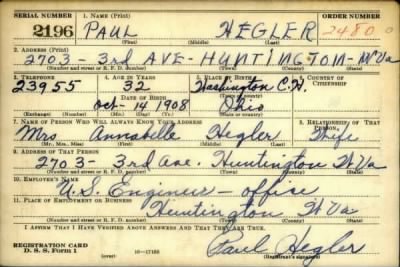 SERIAL NUMBER 1. NAME (Print) ORDER NUMBER
2196 PAUL HEGLER 2480
(First) (Middle) (Last)
2. ADDRESS (Print)
2703 - 3rd AVE - HUNTINGTON - W Va
(Number and street or R. F. D. number) (Town) (County) (State)
3. TELEPHONE 4. AGE IN YEARS 5. PLACE OF BIRTH 6. COUNTRY OF CITIZENSHIP
23955 32 Washington C.H.
DATE OF BIRTH
Oct - 14 1908 Ohio
(Exchange) (Number) (Mo.) (Day) (Yr.) (State or country)
7. NAME OF PERSON WHO WILL ALWAYS KNOW YOUR ADDRESS 8. RELATIONSHIP OF THAT PERSON
Mrs Annabelle Hegler Wife
(Mr., Mrs., Miss) (First) (Middle) (Last)
9. ADDRESS OF THAT PERSON
2703 - 3rd Ave. Huntington W Va
(Number and street or R. F. D. number) (Town) (County) (State)
10. EMPLOYER'S NAME
U.S. Engineer - office
11. PLACE OF EMPLOYMENT OR BUSINESS
Huntington W Va
(Number and street or R. F. D. number) (Town) (County) (State)
I AFFIRM THAT I HAVE VERIFIED ABOVE ANSWERS AND THAT THEY ARE TRUE.
Paul Hegler
REGISTRATION CARD
D. S. S. Form 1 (over) (Registrant's signature)